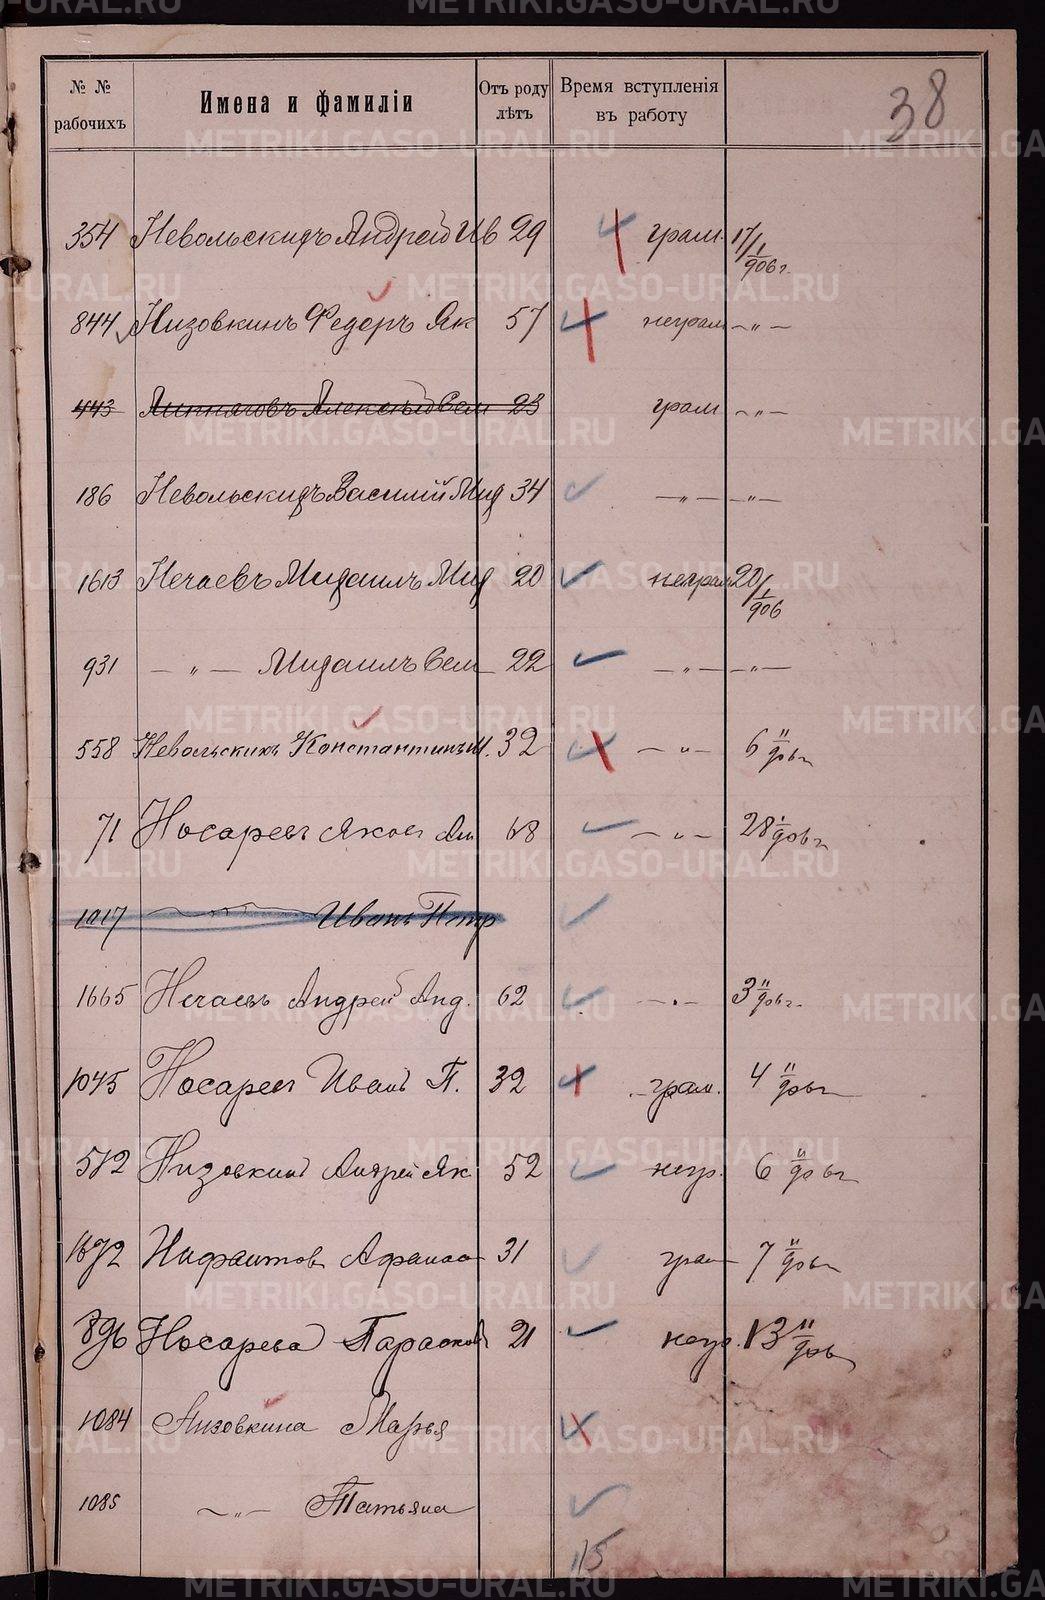 № № рабочихъ Имена и фамиліи Отъ роду лѣтъ Время вступленія въ работу 38
354 Невольскихъ Андрей Ив 29 грам. 17/1 906 г.
844 Низовкинъ Федоръ Як 57 неграм — " —
443 Алексѣй Сем 23 грам — " —
186 Невольскихъ Василій Мих 34 — " — — " —
1613 Нечаевъ Михаилъ Мих 20 неграм 20/1 906
931 — " — Михаилъ Сем 22 — " — — " —
558 Невольскихъ Константинъ М. 32 — " — 6 II/906 г
71 Носаревъ Яковъ 68 — " — 28 1/906 г
1017 Иванъ Петр
1665 Нечаевъ Андрей Анд. 62 — " — 3 II/906 г.
1045 Носаревъ Иванъ П. 32 грам. 4 II/906 г
572 Низовкинъ Андрей Як 52 негр. 6 II/906 г
1672 Нифантовъ Афанас 31 грам 7 II/906 г
896 Носарева Парасков 21 негр. 13 II/906
1084 Низовкина Марья
1085 — " — Татьяна
15
METRIKI.GASO-URAL.RU